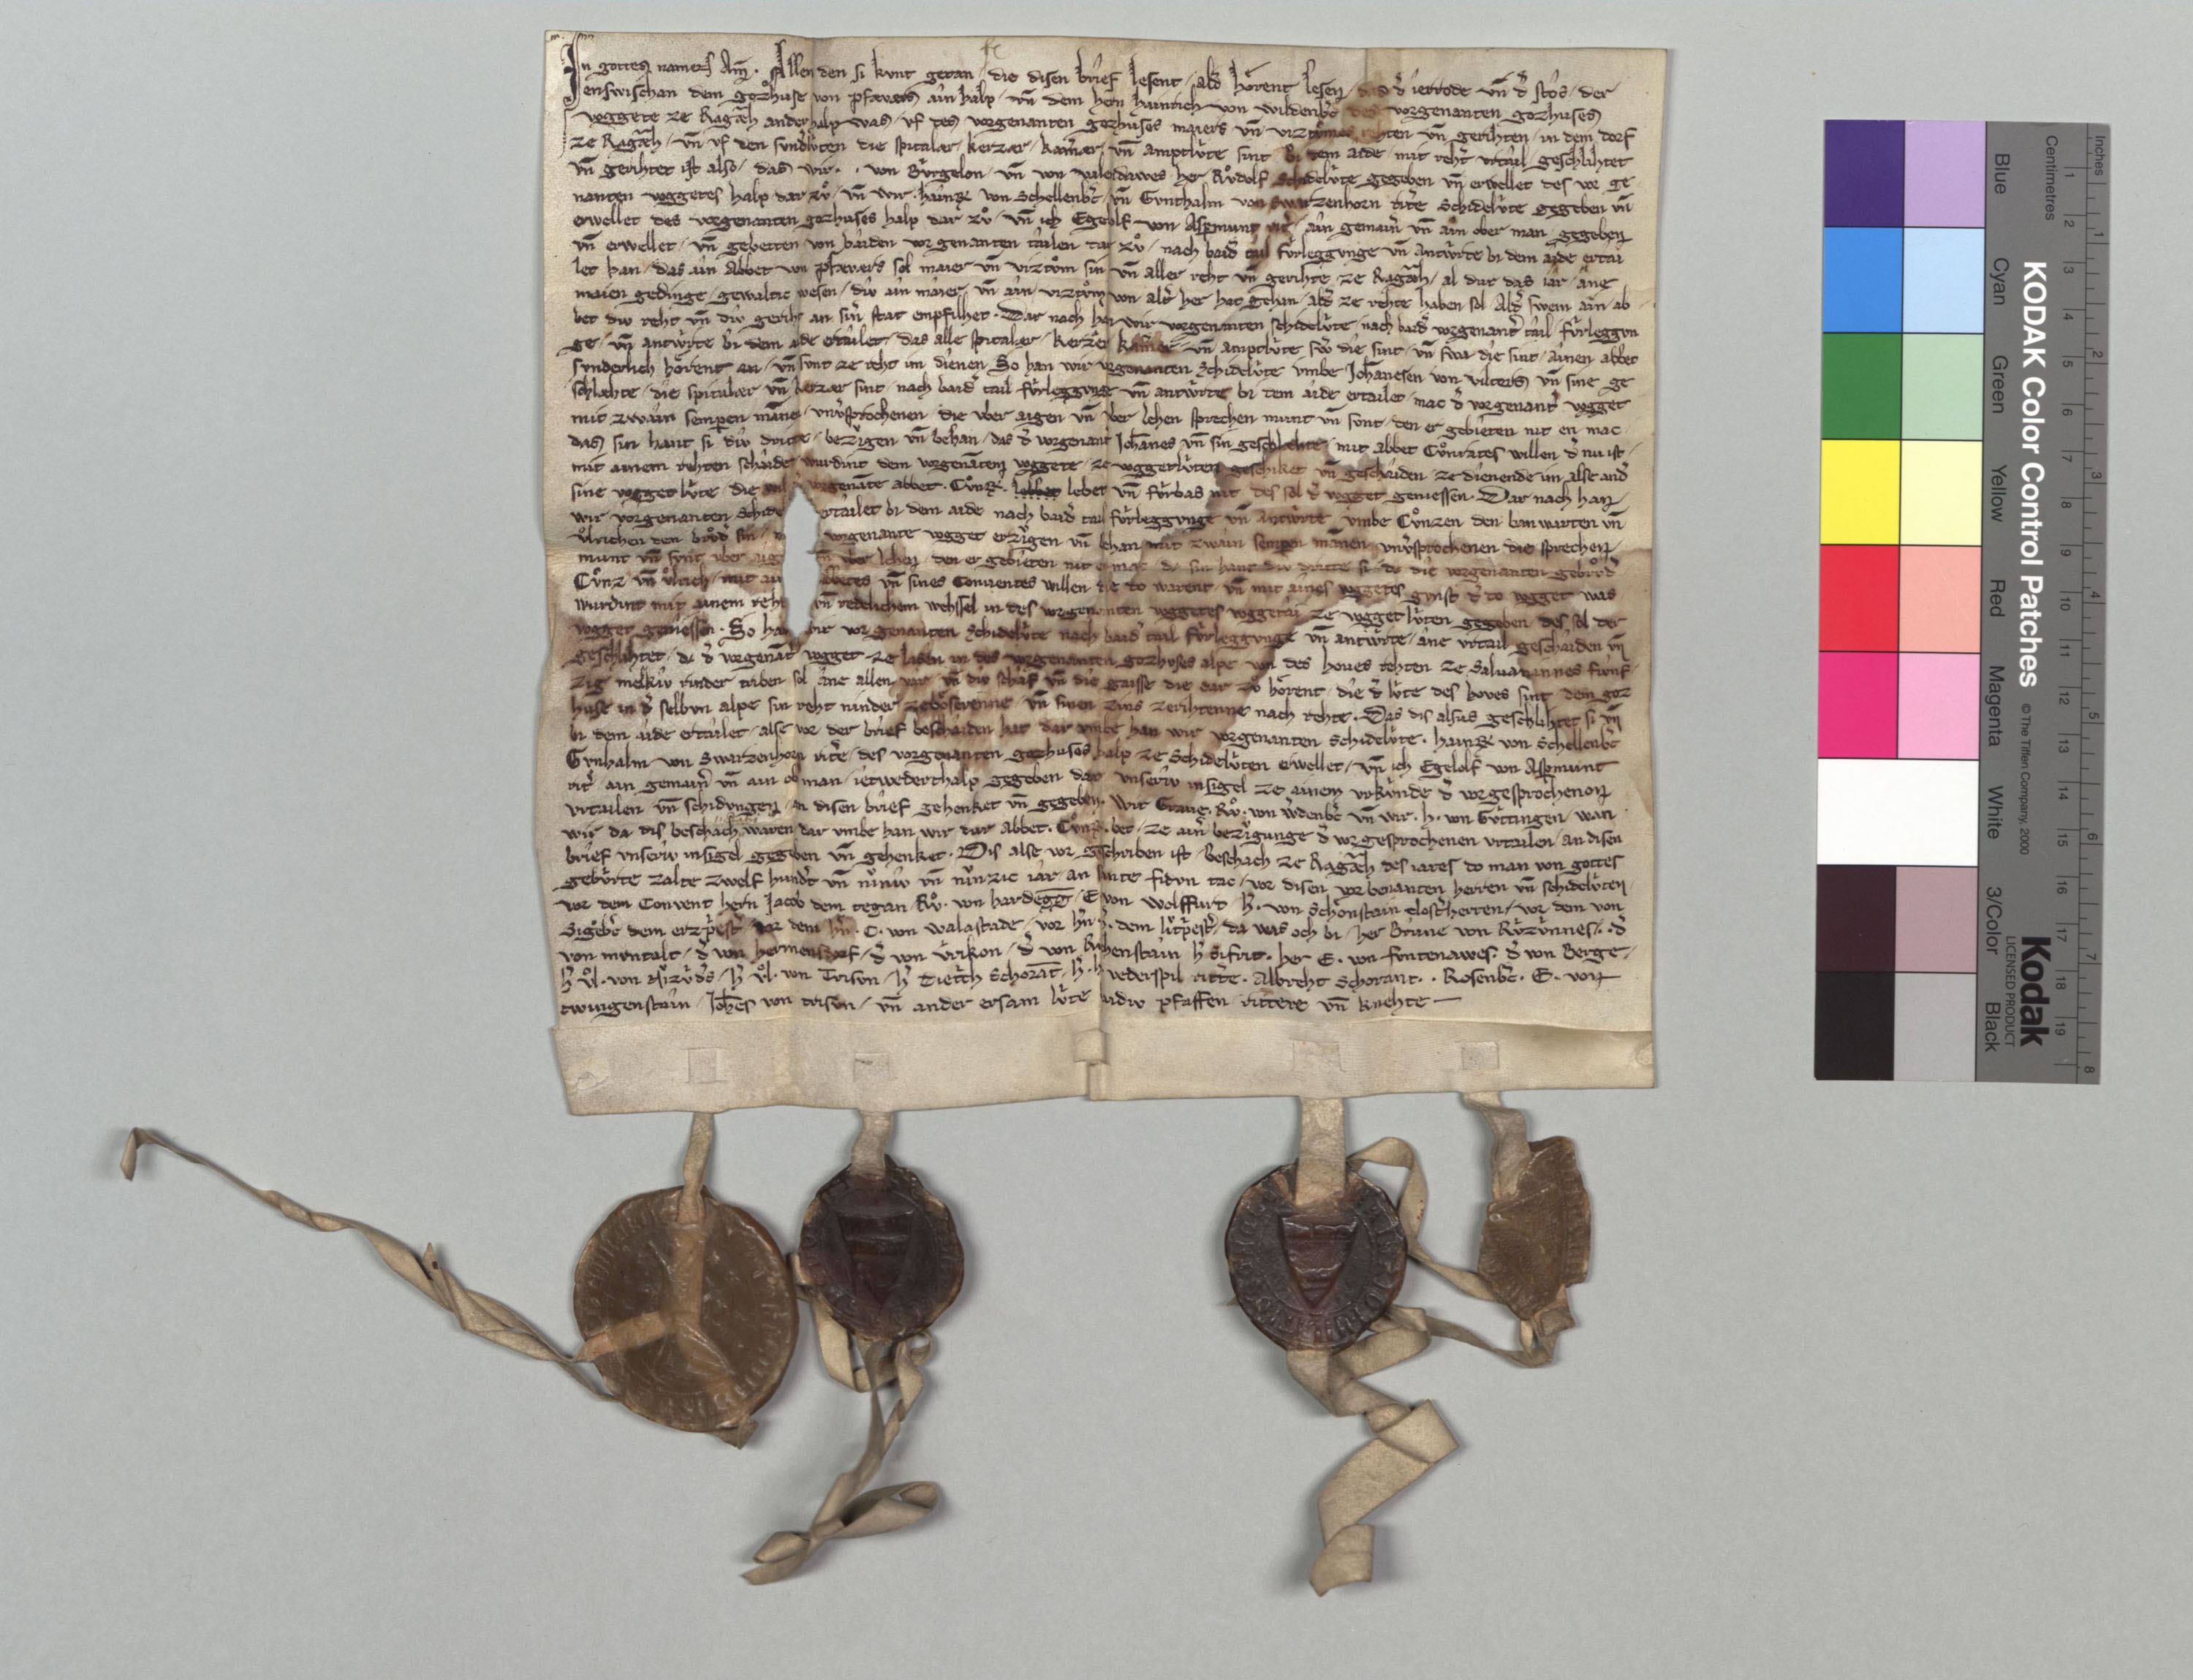 In gottes namen Am̄. Allen den si kunt getan / die disen brief lesent / ald hŏrent lesen / das d' ierrode vn̄ d' stos / der
enswischan dem gozhuse von pfævers ain halp / vn̄ dem hern hainrich von wildenb'c des vorgenanten gozhuses
voggete ze Ragāz anderhalp was / vf des vorgenanten gozhuses maiers vn̄ viztůmes rehten vn̄ gerihten / in dem dorf
ze Ragāz / vn̄ vf den sundlv́ten die spitaler / kerzær / kam̄ær / vn̄ amptlv́te sint / bi dem aide / mit reht' vrtail / geschlihtet
vn̄ gerihtet ist also / das wir . . von Bv́rgelon / vn̄ von valendawes her Rv̊dolf Schidelv́te gegeben vn̄ erwellet des vor ge
nanten voggetes halp dar zv̊ / vn̄ wir . hainr̄ . von Schellenb'c / vn̄ Gvnthalm von Swarzenhorn rit'e Schidelv́te gegeben vn̄
erwellet des vorgenanten gozhuses halp dar zv̊ / vn̄ ich Egelolf von Aspmunt rit' / ain gemain' vn̄ ain ober man / gegeben
vn̄ erwellet / vn̄ gebetten von baiden vor genanten tailen dar zv̊ / nach baid' tail fv́rleggvnge vn̄ antwv́rte bi dem aide ertai
let han / das ain Abbet von pfævers sol maier vn̄ viztv̊m sin vn̄ aller reht vn̄ gerihte / ze Ragāz / al dur das iar / ane
maien gedinge / gewaltic wesen / div ain maier / vn̄ ain / viztv̊m von ald' her hat gehan / ald' ze rehte haben sol Ald' swem ain / ab
bet div reht vn̄ div geriht an sin' stat empfilhet . Dar nach han wir vorgenanten schidelv́te / nach baid' vorgenant' tail / fv́rleggvn
ge / vn̄ antwv́rte bi dem aide ertailet / das alle spitaler / kerzer kam̄er vn̄ amptlv́te swie die sint / vn̄ swa die sint / ainen abbet
svnderlich hŏrent an / vn̄ svnt ze reht im dienen . So han wir vorgenanten Schidelv́te vmbe Johannesen von vilters vn̄ sine ge
schlehte / die spitaler vn̄ kerzær sint / nach baid' tail fv́rleggvnge vn̄ antwv́rte bi dem aide ertailet / mac d' vorgenant' vogget
mit zwain sempern māne / vnv'sprochenen die vber aigen vn̄ vber lehen sprechen munt vn̄ svnt / den er gebieten nit en mac .
das sin hant si div dritte / bezv́gen vn̄ behan / das d' vorgenant Johānes vn̄ sin geschlehte / mit abbet Cv̊nrates willen d' nu ist .
mit ainem rehten schaide wurdint dem vorgenāten voggete / ze voggetlv́ten geschiket vn̄ geschaiden ze dienende im alse and'
sine vogget lv́te / die wil d' vorgenāte abbet . Cv̊nr̄ . lebet vn̄ fv́rbas nit des sol d' vogget geniessen . Dar nach han
wir vorgenanten Schide ertailet bi dem aide nach baid' tail fv́rleggvnge vn̄ antwv́rte vmbe Cv̊nzen den banwarten vn̄
v̊lrichen den brv̊d' sin / vorgenante vogget erzv́gen vn̄ behan mit zwain sempern mānen / vnv'sprochenen die sprechen
munt vn̄ svnt vber aig vn̄ vber lehen / den er gebieten nit en mac / dc sin hant div dritte si dc die vorgenanten gebrv̊d'
Cv̊nz vn̄ v̊lrich / mit ai abbetes vn̄ sines Conventes willen die do warent vn̄ mit aines voggetes gvnst d' do vogget was
wurdint mit ainem reht vn̄ redelichem wehssel in des vorgenanten voggetes voggetai ze vogget lv́ten gegeben des sol der
vogget geniessen . So han wir vor genanten Schidelv́te nach baid' tail fv́rleggvnge vn̄ antwv́rte / ane vrtail geschaiden vn̄
geschlihtet / dc d' vorgenāt vogget ze lasen in des vorgenanten gozhuses alpe von des hoves rehten ze Saluamannes fvnf
zig melkiv rinder triben sol ane allen var vn̄ div schaf vn̄ die gaisse die dar zv̊ hŏrent / die d' lv́te des hoves sint dem goz
huse in d' selbvn alpe sin reht ninder zebŏserenne vn̄ sinen zins zerihtenne nach rehte . Das dis alsus geschlihtet si vn̄
bi dem aide ertailet / alse vor der brief beschaiden hat dar vmbe han wir vorgenanten Schidelv́te . hainr̄ von Schellenb'c
Gvnhalm von Swarzenhorn rit'e / des vorgenanten gozhuses halp ze Schidelv́ten erwellet / vn̄ ich Egelolf von Aspmunt
rit' ain gemain' vn̄ ain obman / ietwederthalp gegeben dar vnseriv insigel ze ainem vrkv́nde d' vorgesprochenon
vrtailen vn̄ schidvngen / an disen brief gehenket vn̄ gegeben . Wir Grave . Rv̊ . von w'denb'c vn̄ wir . h . von Gv́ttingen / wan
wir da dis beschach waren dar vmbe han wir dur abbet . Cv̊nr̄ . bet / ze ain' bezv́gunge d' vorgesprochenen vrtailen / an disen
brief vnseriv insigel gegeben vn̄ gehenket . Dis alse vor geschriben ist / beschach ze Ragāz des iares do man von gottes
gebv́rte zalte zwelf hund't vn̄ nv́niv vn̄ nv́nzic iar / an sante fidvn tac / vor disen vor benanten herren vn̄ schidelv́ten
vor dem Convent hern Jacob dem tegan / Rv̊ . von hardegg / E von wolffurt / h' . von Schŏnstain clost'herren / vor dem von
Sigeb'c dem erzp'est' vor dem h'n . C . von walastade / vor h'n h . dem lv́tp'est' / da was och bi / her Brune von Rv́zv́nnes . d'
von montalt / d' von hermensdorf / d' von v́rikon / d' von Rihenstain h' Sifrit . her E . von fontenawes . d' von Berge /
h' v̊l . von / h' v̊l . von Trison / h' Diet'ch Schorāt . h' . h vederspil rit'te . Albreht Schorant . . Rosenb'c . E . von
twingenstain / Joh'es von trison / vn̄ ander ersam lv́te baidiv pfaffen / rittere vn̄ knehte —
KODAK Color Control Patches
© The Tiffen Company, 2000
Kodak
LICENSED PRODUCT
Blue
Cyan
Green
Yellow
Red
Magenta
White
3/Color
Black
Inches
1 2 3 4 5 6 7 8
Centimetres
1 2 3 4 5 6 7 8 9 10 11 12 13 14 15 16 17 18 19